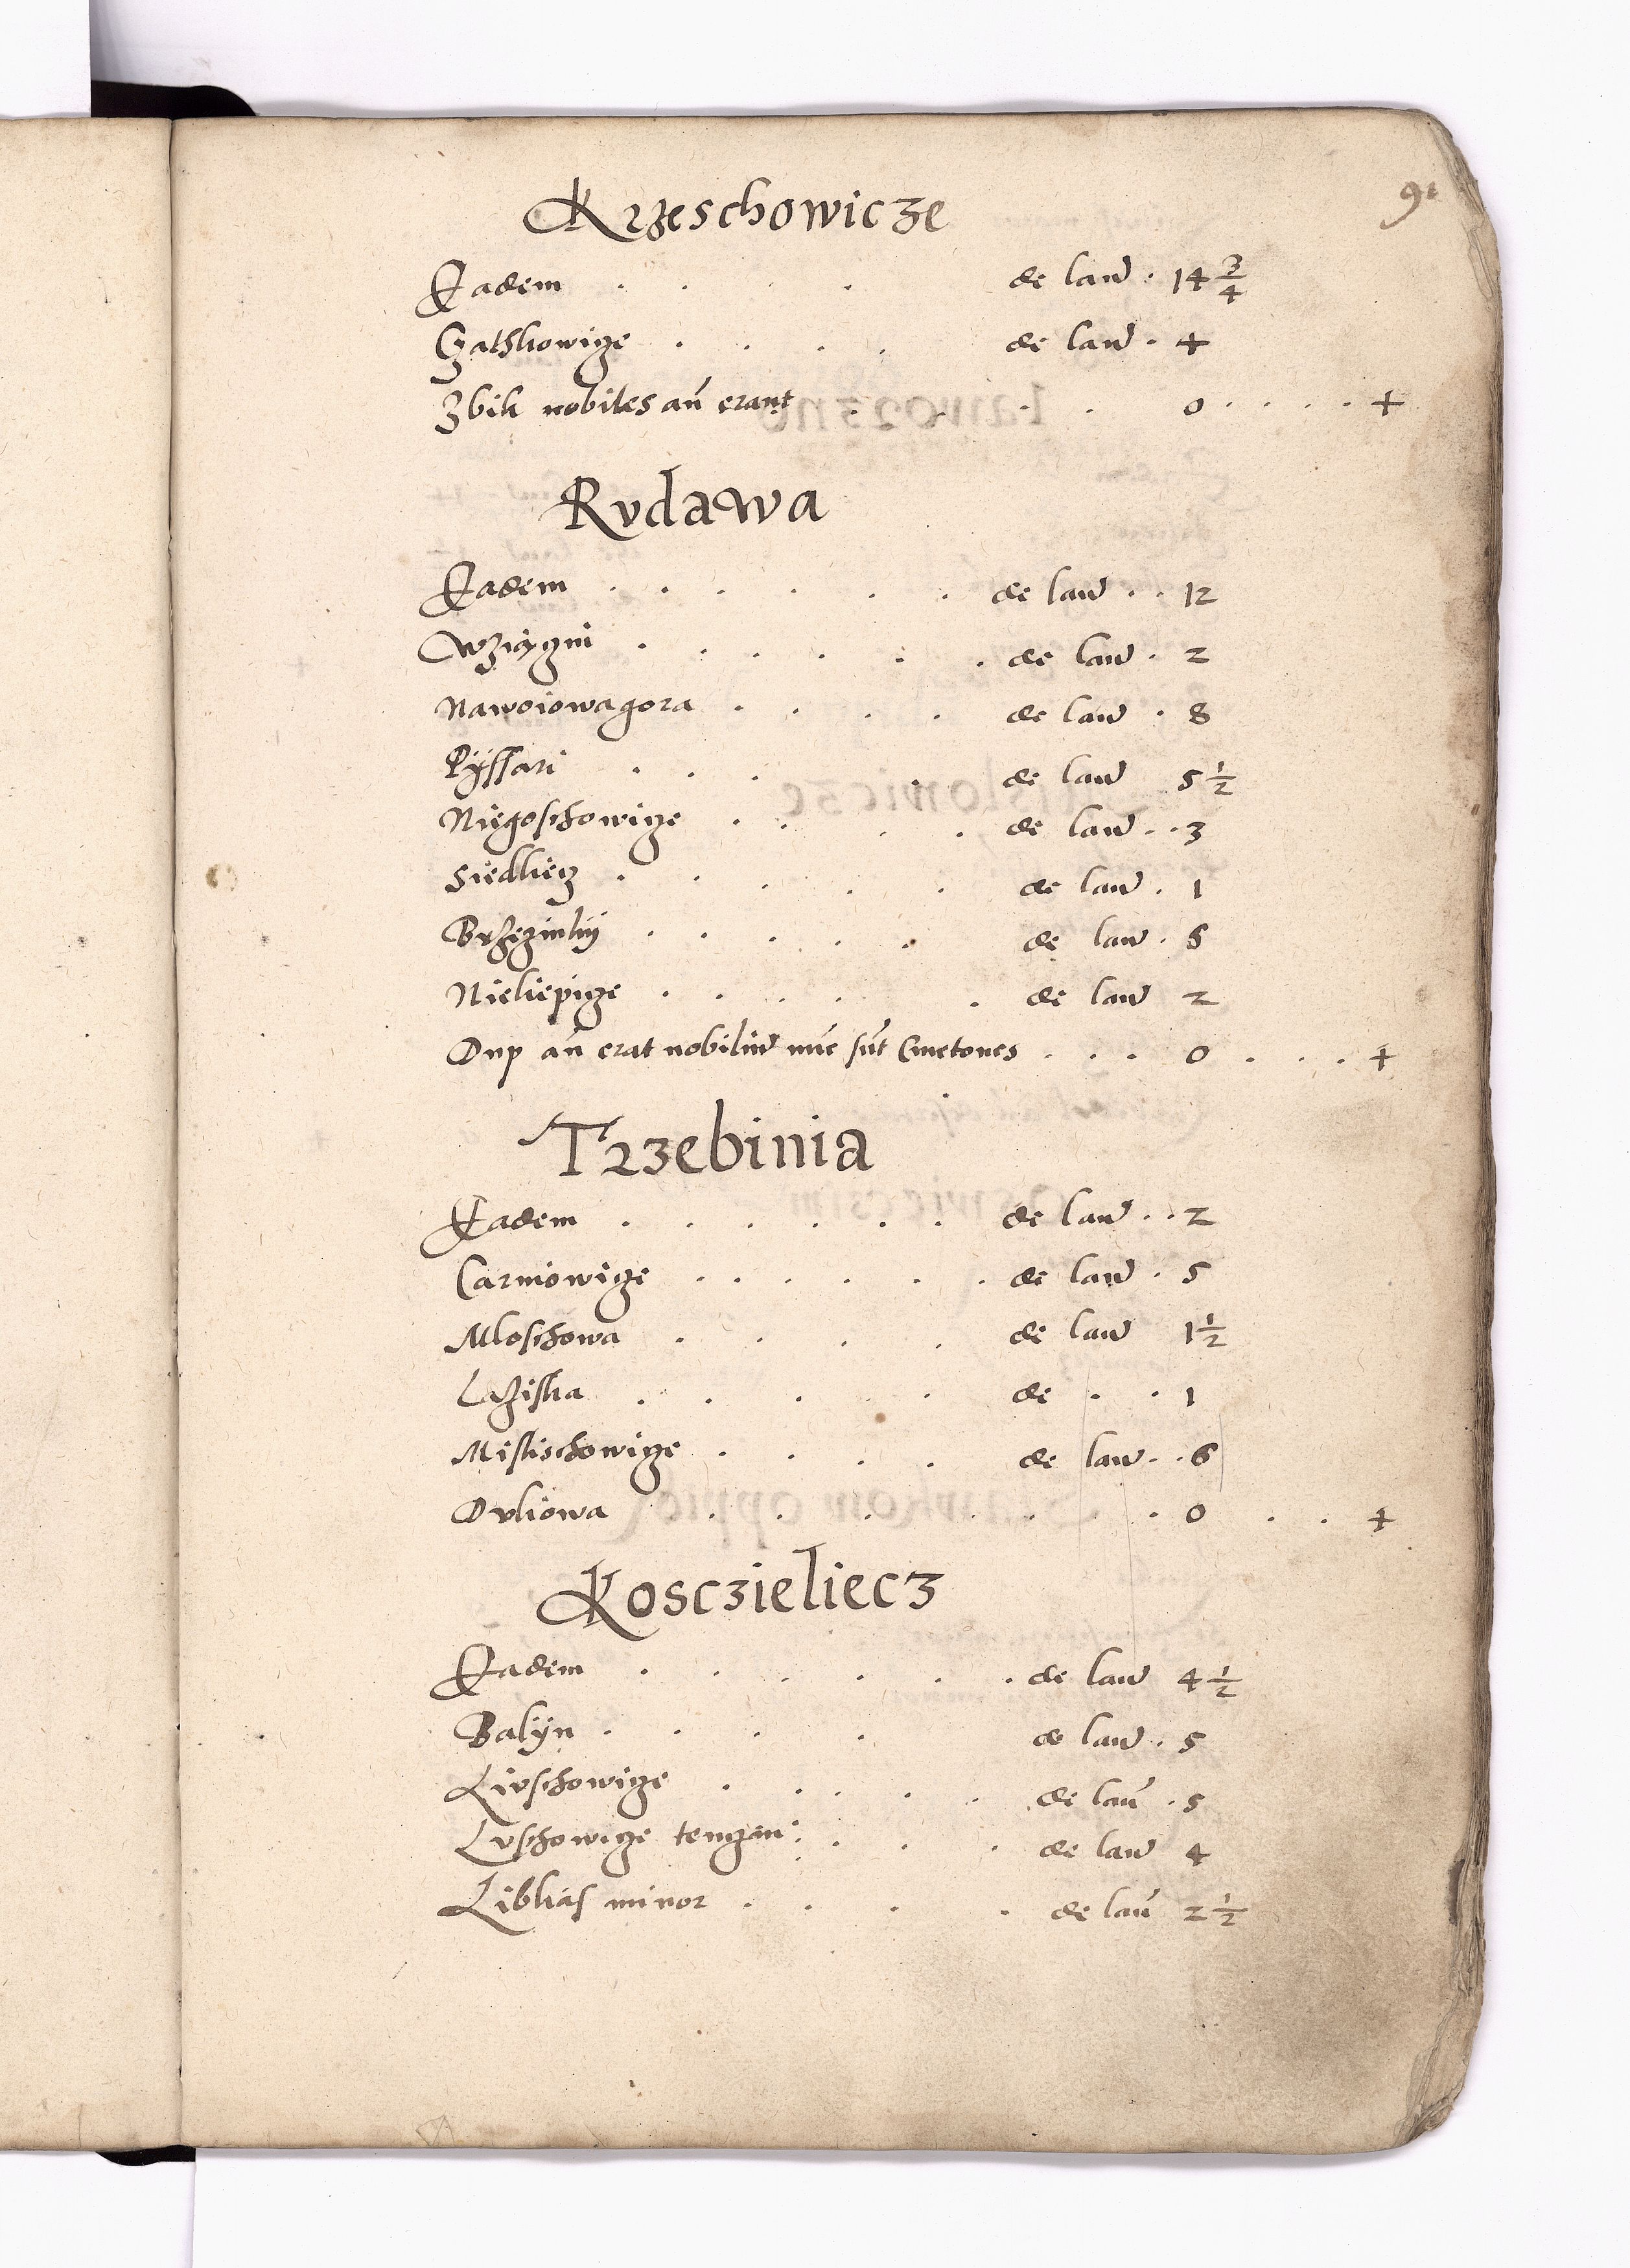 91
Krzeschowicze
Eadem . . . . de lan̄ . 14 3/4
Czathkowicze . . . . de lan̄ . 4
Zbik nobiles an̄ erant . . . . 0 . . . . +
Rvdawa
Eadem . . . . . . de lan̄ . . 12
Nawoiowagora . . . . de lan̄ . 8
Pÿssari . . . . de lan̄ 5 1/2
Niegoschowicze . . . . de lan̄ . . 3
Siedliecz . . . . . de lan̄ . 1
Brzezinkÿ . . . . . de lan̄ . 5
Nieliepicze . . . . . de lan̄ 2
Dup an̄ erat nobiliū nūc sūt Cmetones . . . 0 . . . +
Trzebinia
Eadem . . . . . . de lan̄ . . 2
Carniowicze . . . . . . de lan̄ . 5
Mloschowa . . . . de lan̄ 1 1/2
Laziska . . . . . de . . 1
Misliochowicze . . . . de lan̄ . . 6
Dvliowa . . . . . . . 0 . . +
Kosczieliecz
Eadem . . . . . . de lan̄ 4 1/2
Balÿn . . . . de lan̄ . 5
Livschowicze . . . . . de lan̄ . 5
Lvschowicze tenczin: . . . de lan̄ 4
Libkas minor . . . . de lan̄ 2 1/2